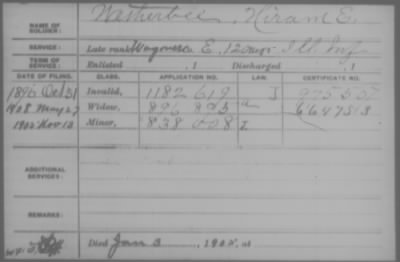 NAME OF SOLDIER: Wetherbee, Hiram E.
SERVICE: Late rank Wagoner Co E, 120 Regt Ill Inf
TERM OF SERVICE: Enlisted , 1 Discharged , 1
DATE OF FILING. CLASS. APPLICATION NO. LAW. CERTIFICATE NO.
1896 Oct 31 Invalid, 1182 619 J
1908 May 27 Widow,
1902 Nov 13 Minor, 838 008 I
ADDITIONAL SERVICES:
REMARKS:
Died Jan 3 , 190 , at